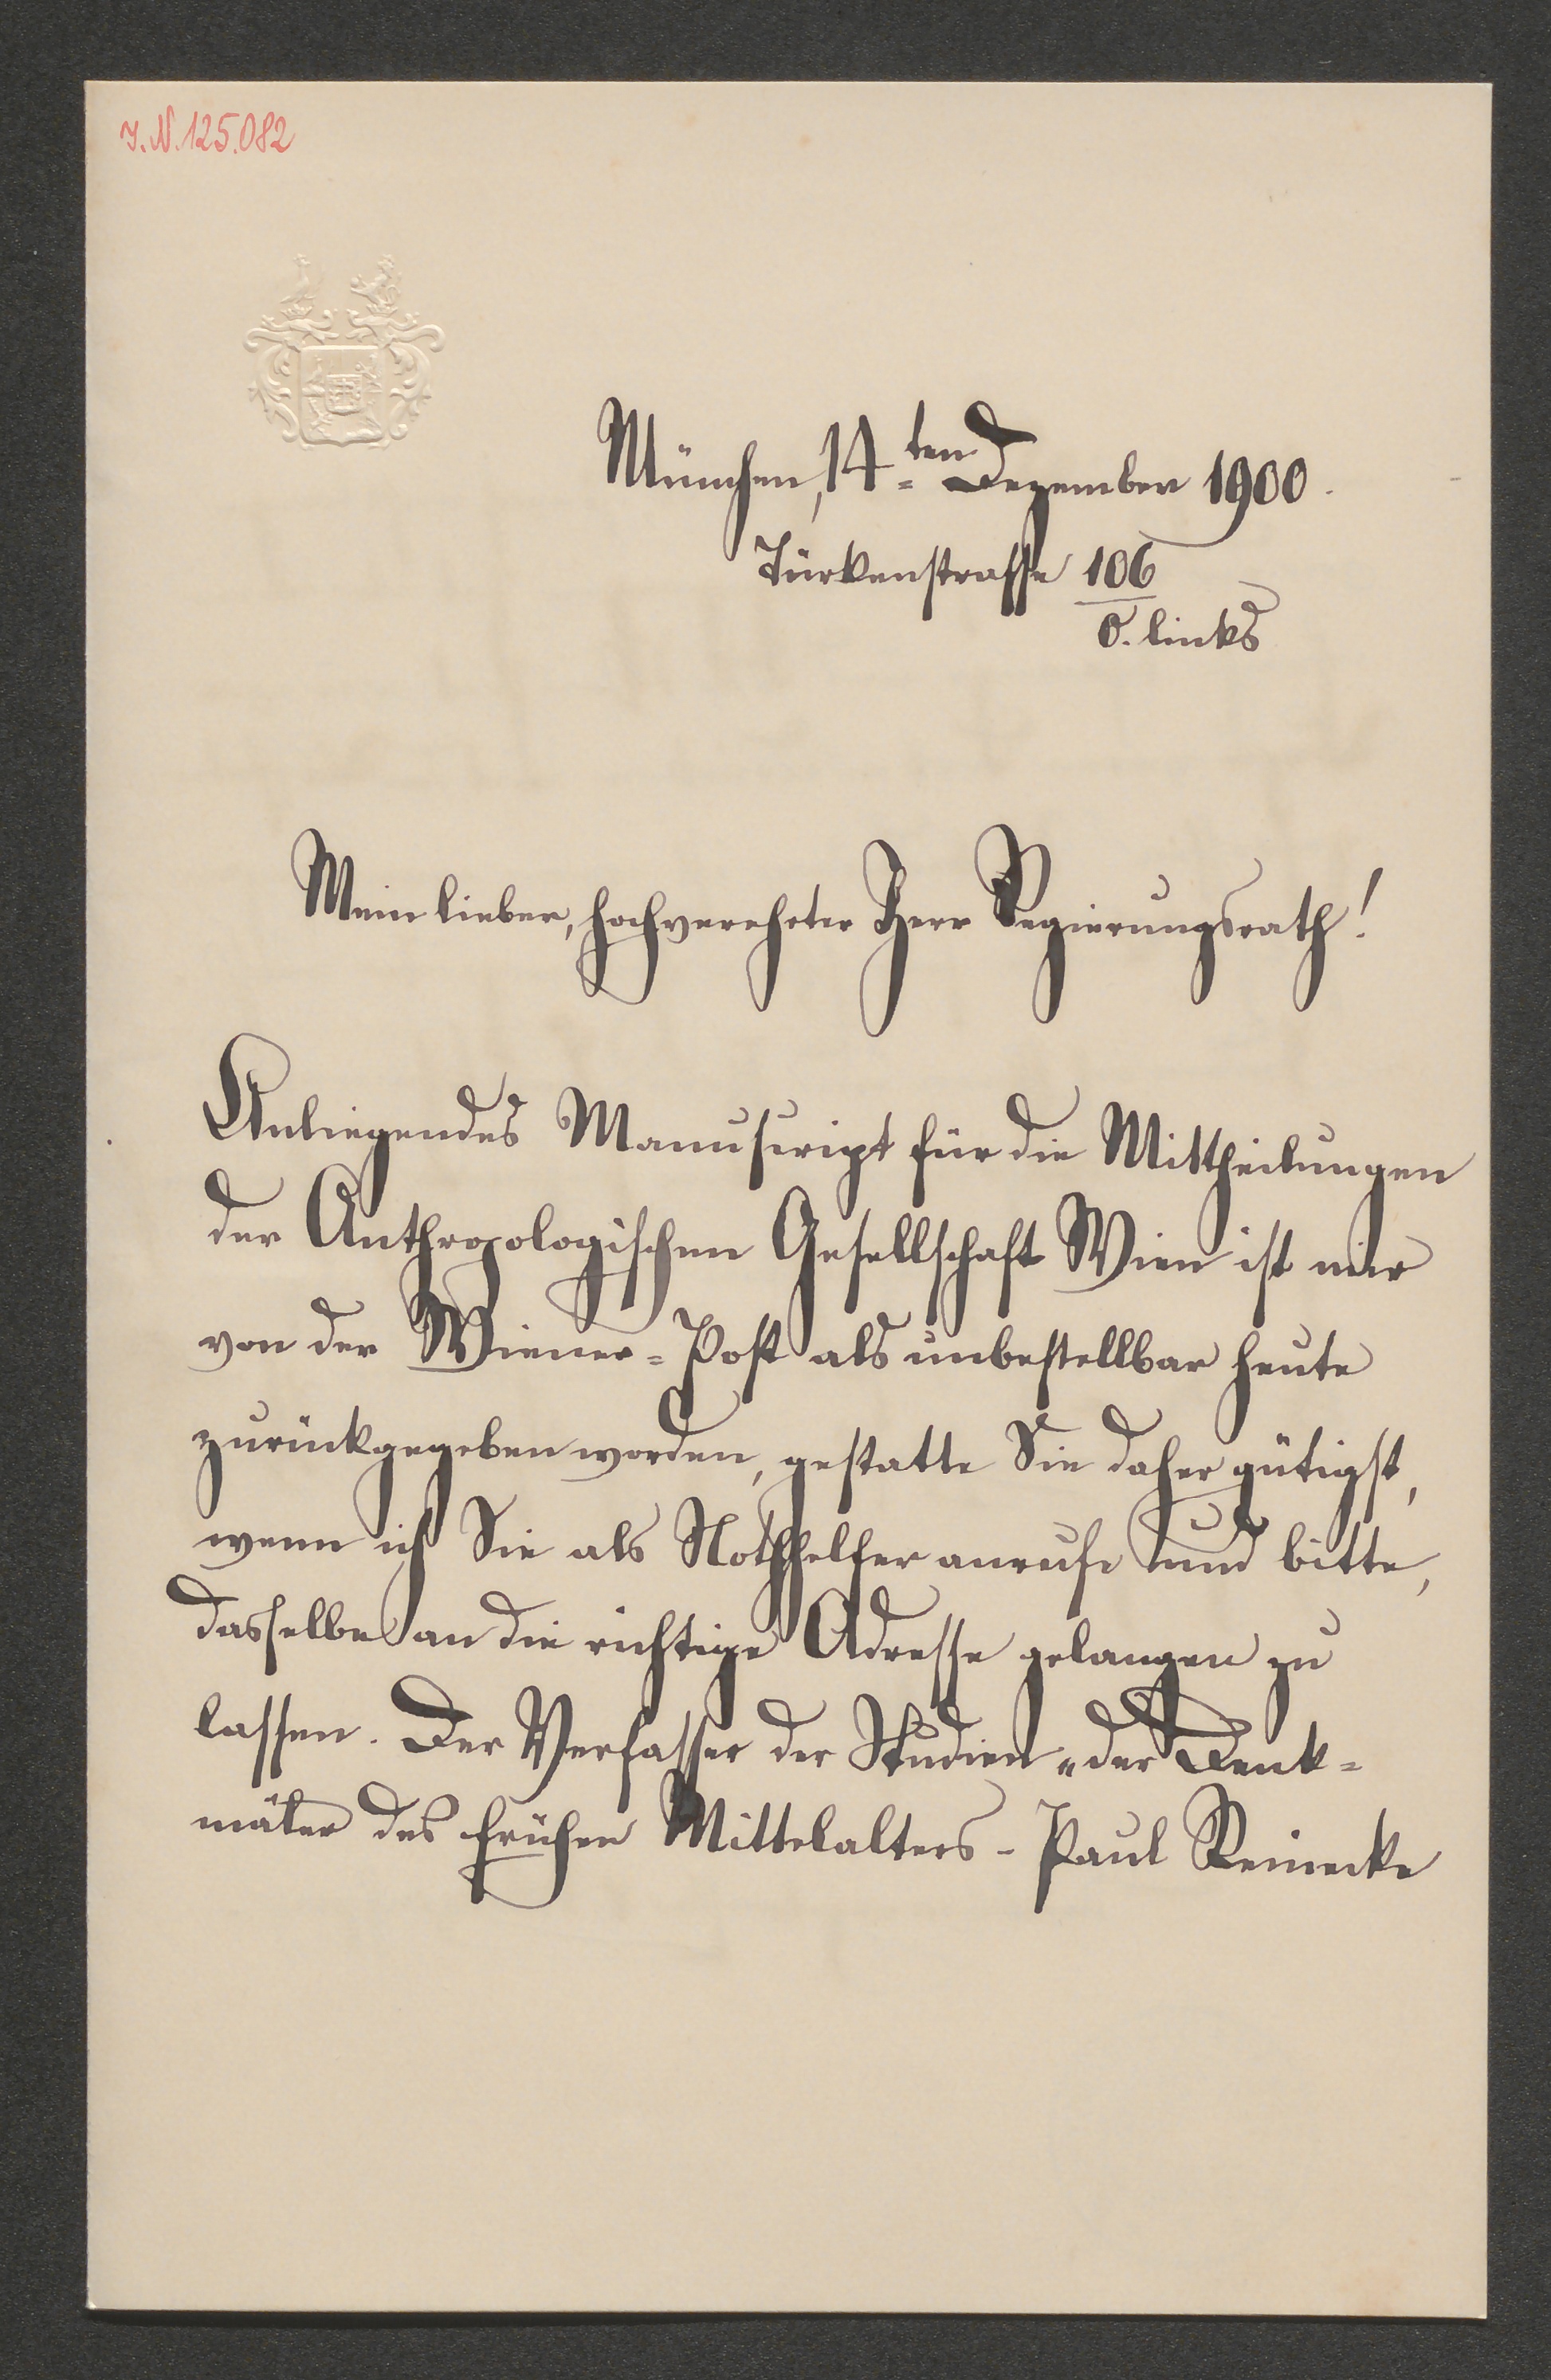 I.N. 125.082
München, 14.ten Dezember 1900.
Türkenstrasse 106
0. links
Mein lieber, hochverehrter Herr Regierungsrath!
Anliegendes Manuscript für die Mittheilungen
der Anthropologischen Gesellschaft Wien ist mir
von der Wiener-Post als unbestellbar heute
zurückgegeben worden, gestatte Sie daher gütigst,
wenn ich Sie als Nothhelfer anrufe und bitte,
dasselbe an die richtige Adresse gelangen zu
lassen. Der Verfasser der Studien „der Denk-
mäler des frühen Mittelalters - Paul Reinecke